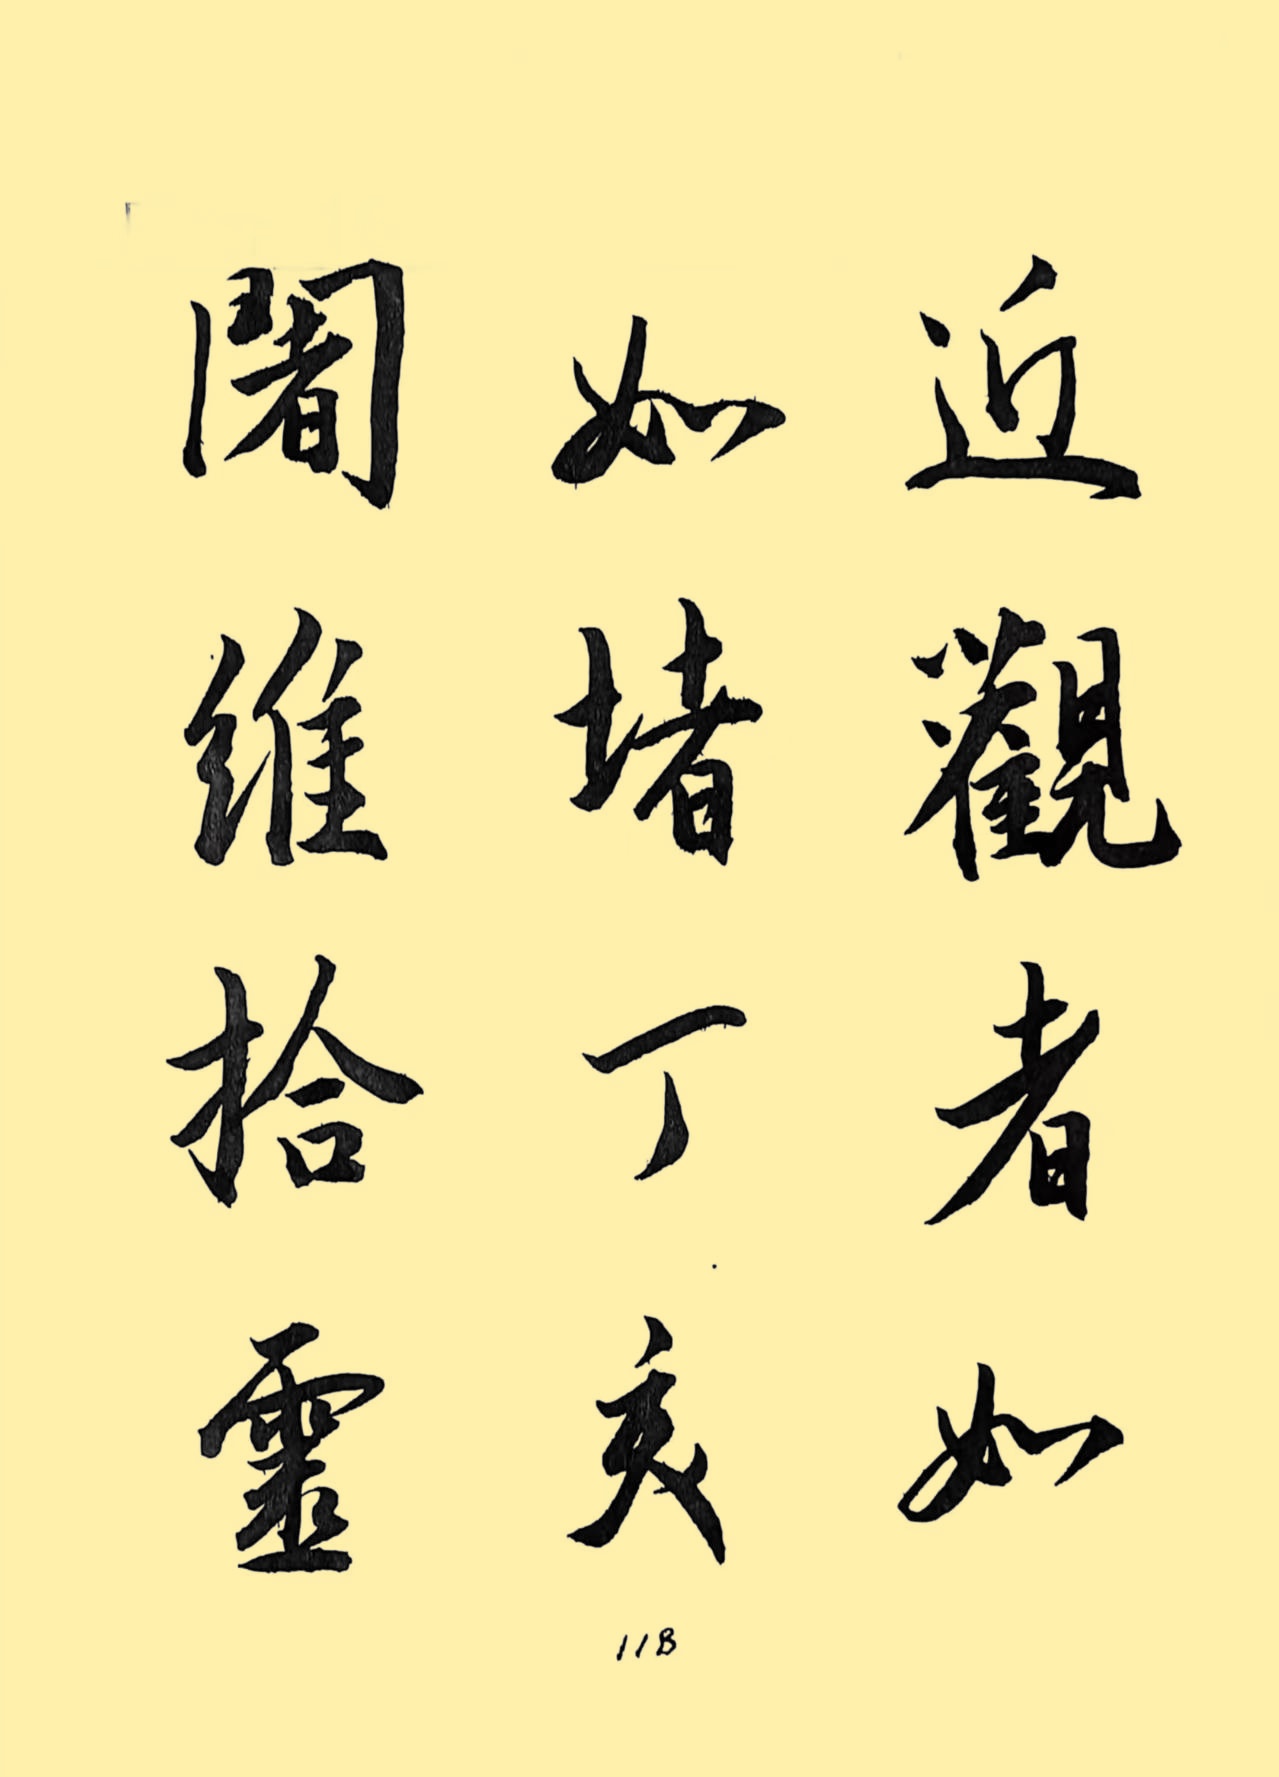 近觀者如
如堵丁亥
闍維拾靈
11B